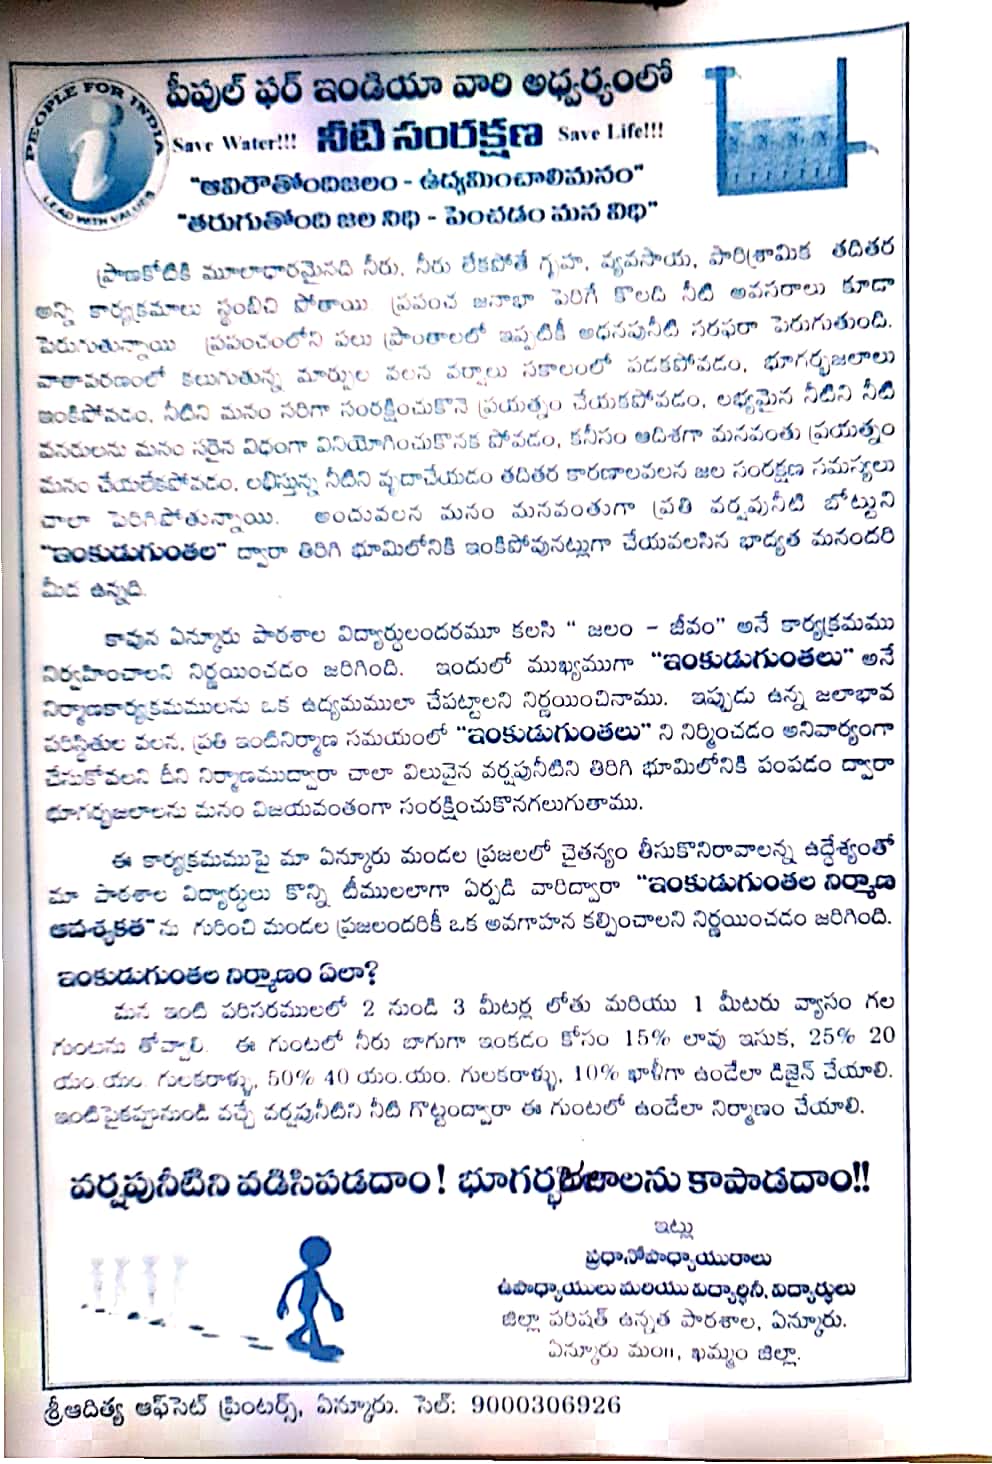 PEOPLE FOR INDIA
LEAD WITH VALUES
పీపుల్ ఫర్ ఇండియా వారి అధ్వర్యంలో
Save Water!!! నీటి సంరక్షణ Save Life!!!
"ఆవిరౌతోందిజలం - ఉద్యమించాలిమనం"
"తరుగుతోంది జల నిధి - పెంచడం మన విధి"
ప్రాణకోటికి మూలాధారమైనది నీరు. నీరు లేకపోతే గృహ, వ్యవసాయ, పారిశ్రామిక తదితర
అన్ని కార్యక్రమాలు స్థంబించి పోతాయి ప్రపంచ జనాభా పెరిగే కొలది నీటి అవసరాలు కూడా
పెరుగుతున్నాయి ప్రపంచంలోని పలు ప్రాంతాలలో ఇప్పటికీ అధనపునీటి సరఫరా పెరుగుతుంది.
వాతావరణంలో కలుగుతున్న మార్పుల వలన వర్షాలు సకాలంలో పడకపోవడం, భూగర్భజలాలు
ఇంకిపోవడం, నీటిని మనం సరిగా సంరక్షించుకొనె ప్రయత్నం చేయకపోవడం, లభ్యమైన నీటిని నీటి
వనరులను మనం సరైన విధంగా వినియోగించుకొనక పోవడం, కనీసం ఆదిశగా మనవంతు ప్రయత్నం
మనం చేయలేకపోవడం, లభిస్తున్న నీటిని వృదాచేయడం తదితర కారణాలవలన జల సంరక్షణ సమస్యలు
చాలా పెరిగిపోతున్నాయి. అందువలన మనం మనవంతుగా ప్రతి వర్షపునీటి బొట్టుని
"ఇంకుడుగుంతల" ద్వారా తిరిగి భూమిలోనికి ఇంకిపోవునట్లుగా చేయవలసిన భాద్యత మనందరి
మీద ఉన్నది.
కావున ఏన్కూరు పాఠశాల విద్యార్ధులందరమూ కలసి " జలం - జీవం" అనే కార్యక్రమము
నిర్వహించాలని నిర్ణయించడం జరిగింది. ఇందులో ముఖ్యముగా "ఇంకుడుగుంతలు" అనే
నిర్మాణకార్యక్రమములను ఒక ఉద్యమములా చేపట్టాలని నిర్ణయించినాము. ఇప్పుడు ఉన్న జలాభావ
పరిస్థితుల వలన, ప్రతి ఇంటినిర్మాణ సమయంలో "ఇంకుడుగుంతలు" ని నిర్మించడం అనివార్యంగా
చేసుకోవలని దీని నిర్మాణముద్వారా చాలా విలువైన వర్షపునీటిని తిరిగి భూమిలోనికి పంపడం ద్వారా
భూగర్భజలాలను మనం విజయవంతంగా సంరక్షించుకొనగలుగుతాము.
ఈ కార్యక్రమముపై మా ఏన్కూరు మండల ప్రజలలో చైతన్యం తీసుకొనిరావాలన్న ఉద్దేశ్యంతో
మా పాఠశాల విద్యార్ధులు కొన్ని టీములలాగా ఏర్పడి వారిద్వారా "ఇంకుడుగుంతల నిర్మాణ
ఆవశ్యకత" ను గురించి మండల ప్రజలందరికీ ఒక అవగాహన కల్పించాలని నిర్ణయించడం జరిగింది.
ఇంకుడుగుంతల నిర్మాణం ఏలా?
మన ఇంటి పరిసరములలో 2 నుండి 3 మీటర్ల లోతు మరియు 1 మీటరు వ్యాసం గల
గుంటను తోవ్వాలి. ఈ గుంటలో నీరు బాగుగా ఇంకడం కోసం 15% లావు ఇసుక, 25% 20
యం.యం. గులకరాళ్ళు, 50% 40 యం.యం. గులకరాళ్ళు, 10% ఖాళీగా ఉండేలా డిజైన్ చేయాలి.
ఇంటిపైకప్పునుండి వచ్చే వర్షపునీటిని నీటి గొట్టంద్వారా ఈ గుంటలో ఉండేలా నిర్మాణం చేయాలి.
వర్షపునీటిని వడిసిపడదాం! భూగర్భజలాలను కాపాడదాం!!
ఇట్లు
ప్రధానోపాధ్యాయురాలు
ఉపాధ్యాయులు మరియు విద్యార్ధినీ, విద్యార్ధులు
జిల్లా పరిషత్ ఉన్నత పాఠశాల, ఏన్కూరు.
ఏన్కూరు మం॥, ఖమ్మం జిల్లా.
శ్రీఆదిత్య ఆఫ్‌సెట్ ప్రింటర్స్, ఏన్కూరు. సెల్: 9000306926